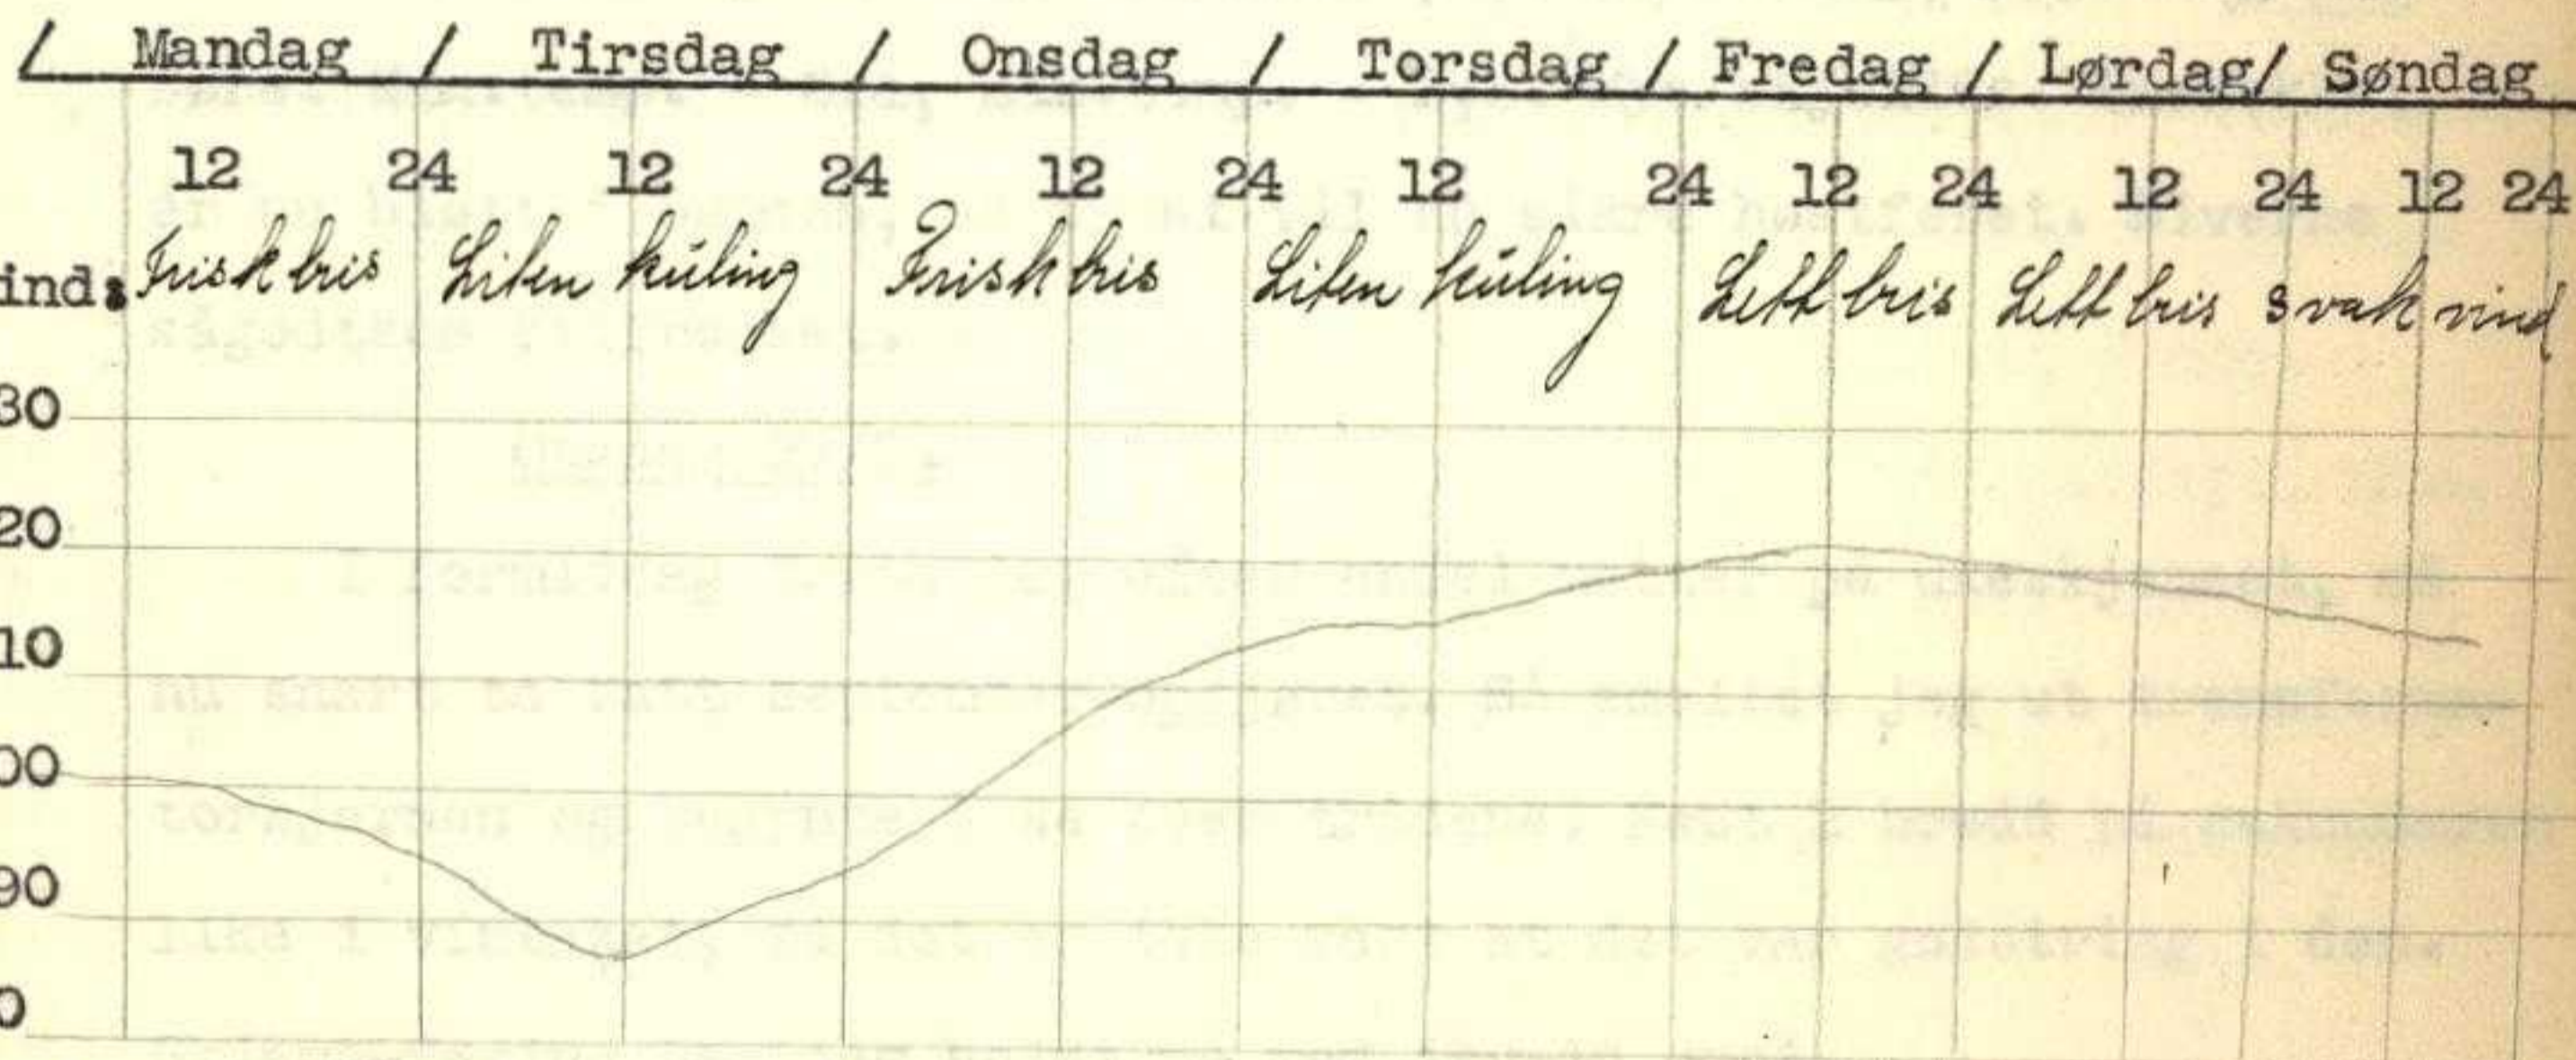 / Mandag / Tirsdag / Onsdag / Torsdag / Fredag / Lørdag / Søndag
12 24 12 24 12 24 12 24 12 24 12 24 12 24
ind: Frisk bris Liten kúling Frisk bris Liten kúling Lett bris Lett bris svak vind
30
20
10
00
90
0